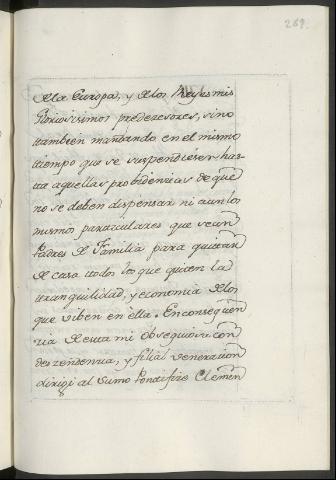 269.
de la Europa, y de los Reyes mis
Gloriosisimos predecesores, sino
tambien mandando en el mismo
tiempo que se suspendiesen has-
ta aquellas probidencias de que
no se deben dispensar ni aun los
mismos particulares que sean
Padres de Familia para quitar
de casa todos los que quiten la
tranquilidad, y economia de los
que viben en ella. En consequen
cia de esta mi obsequiosa con
descendencia, y filial veneracion
dirigi al Sumo Pontifize Clemen